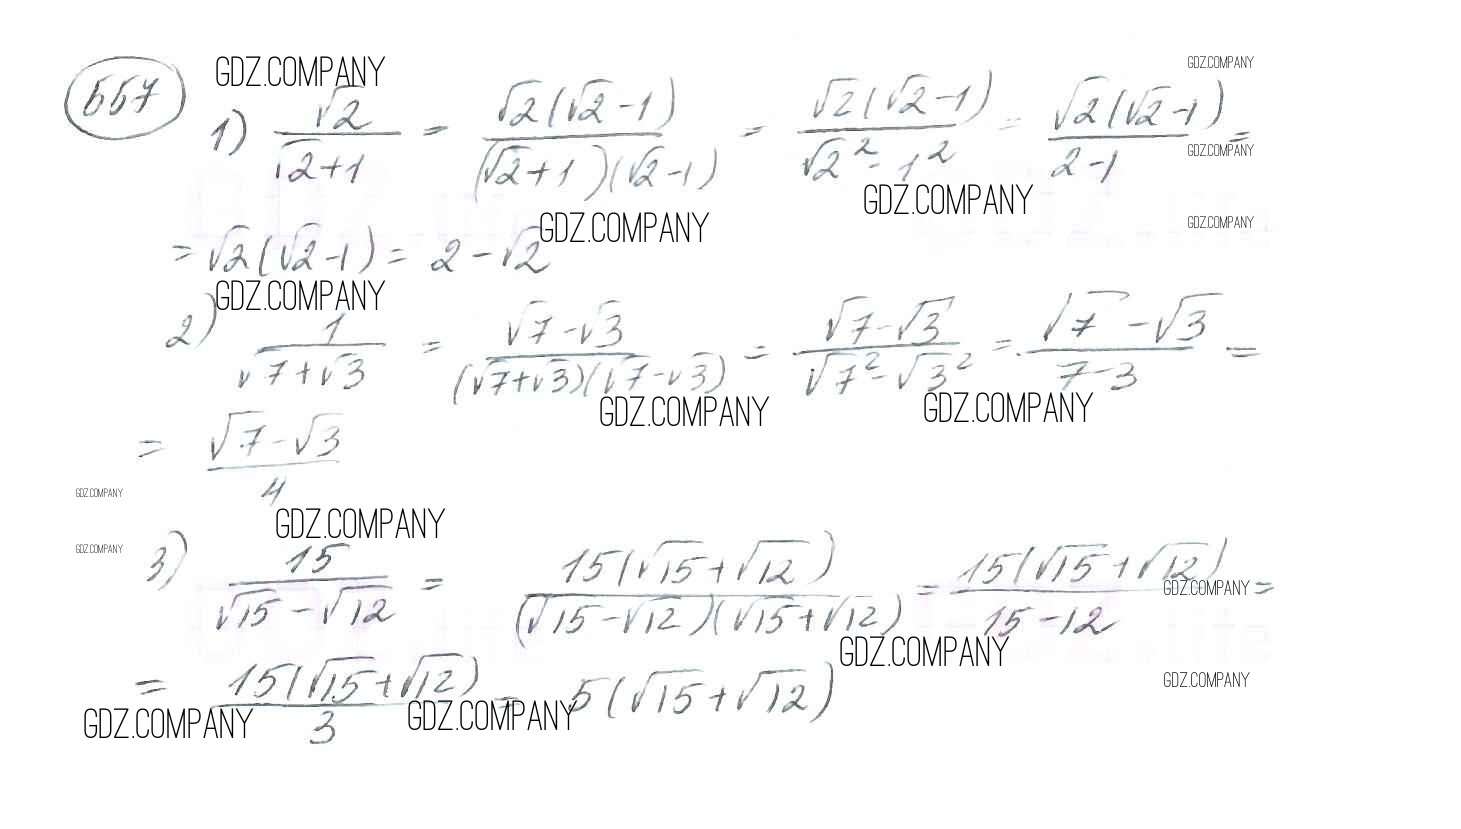 557
GDZ.COMPANY
GDZ.COMPANY
1) √2/(√2+1) = √2(√2-1)/((√2+1)(√2-1)) = √2(√2-1)/(√2²-1²) = √2(√2-1)/(2-1) =
GDZ.COMPANY
GDZ.COMPANY
GDZ.COMPANY
GDZ.COMPANY
= √2(√2-1) = 2-√2
GDZ.COMPANY
2) 1/(√7+√3) = (√7-√3)/((√7+√3)(√7-√3)) = (√7-√3)/(√7²-√3²) = (√7-√3)/(7-3) =
GDZ.COMPANY
GDZ.COMPANY
= (√7-√3)/4
GDZ.COMPANY
GDZ.COMPANY
GDZ.COMPANY
3) 15/(√15-√12) = 15(√15+√12)/((√15-√12)(√15+√12)) = 15(√15+√12)/(15-12) =
GDZ.COMPANY
GDZ.COMPANY
GDZ.COMPANY
= 15(√15+√12)/3 = 5(√15+√12)
GDZ.COMPANY
GDZ.COMPANY